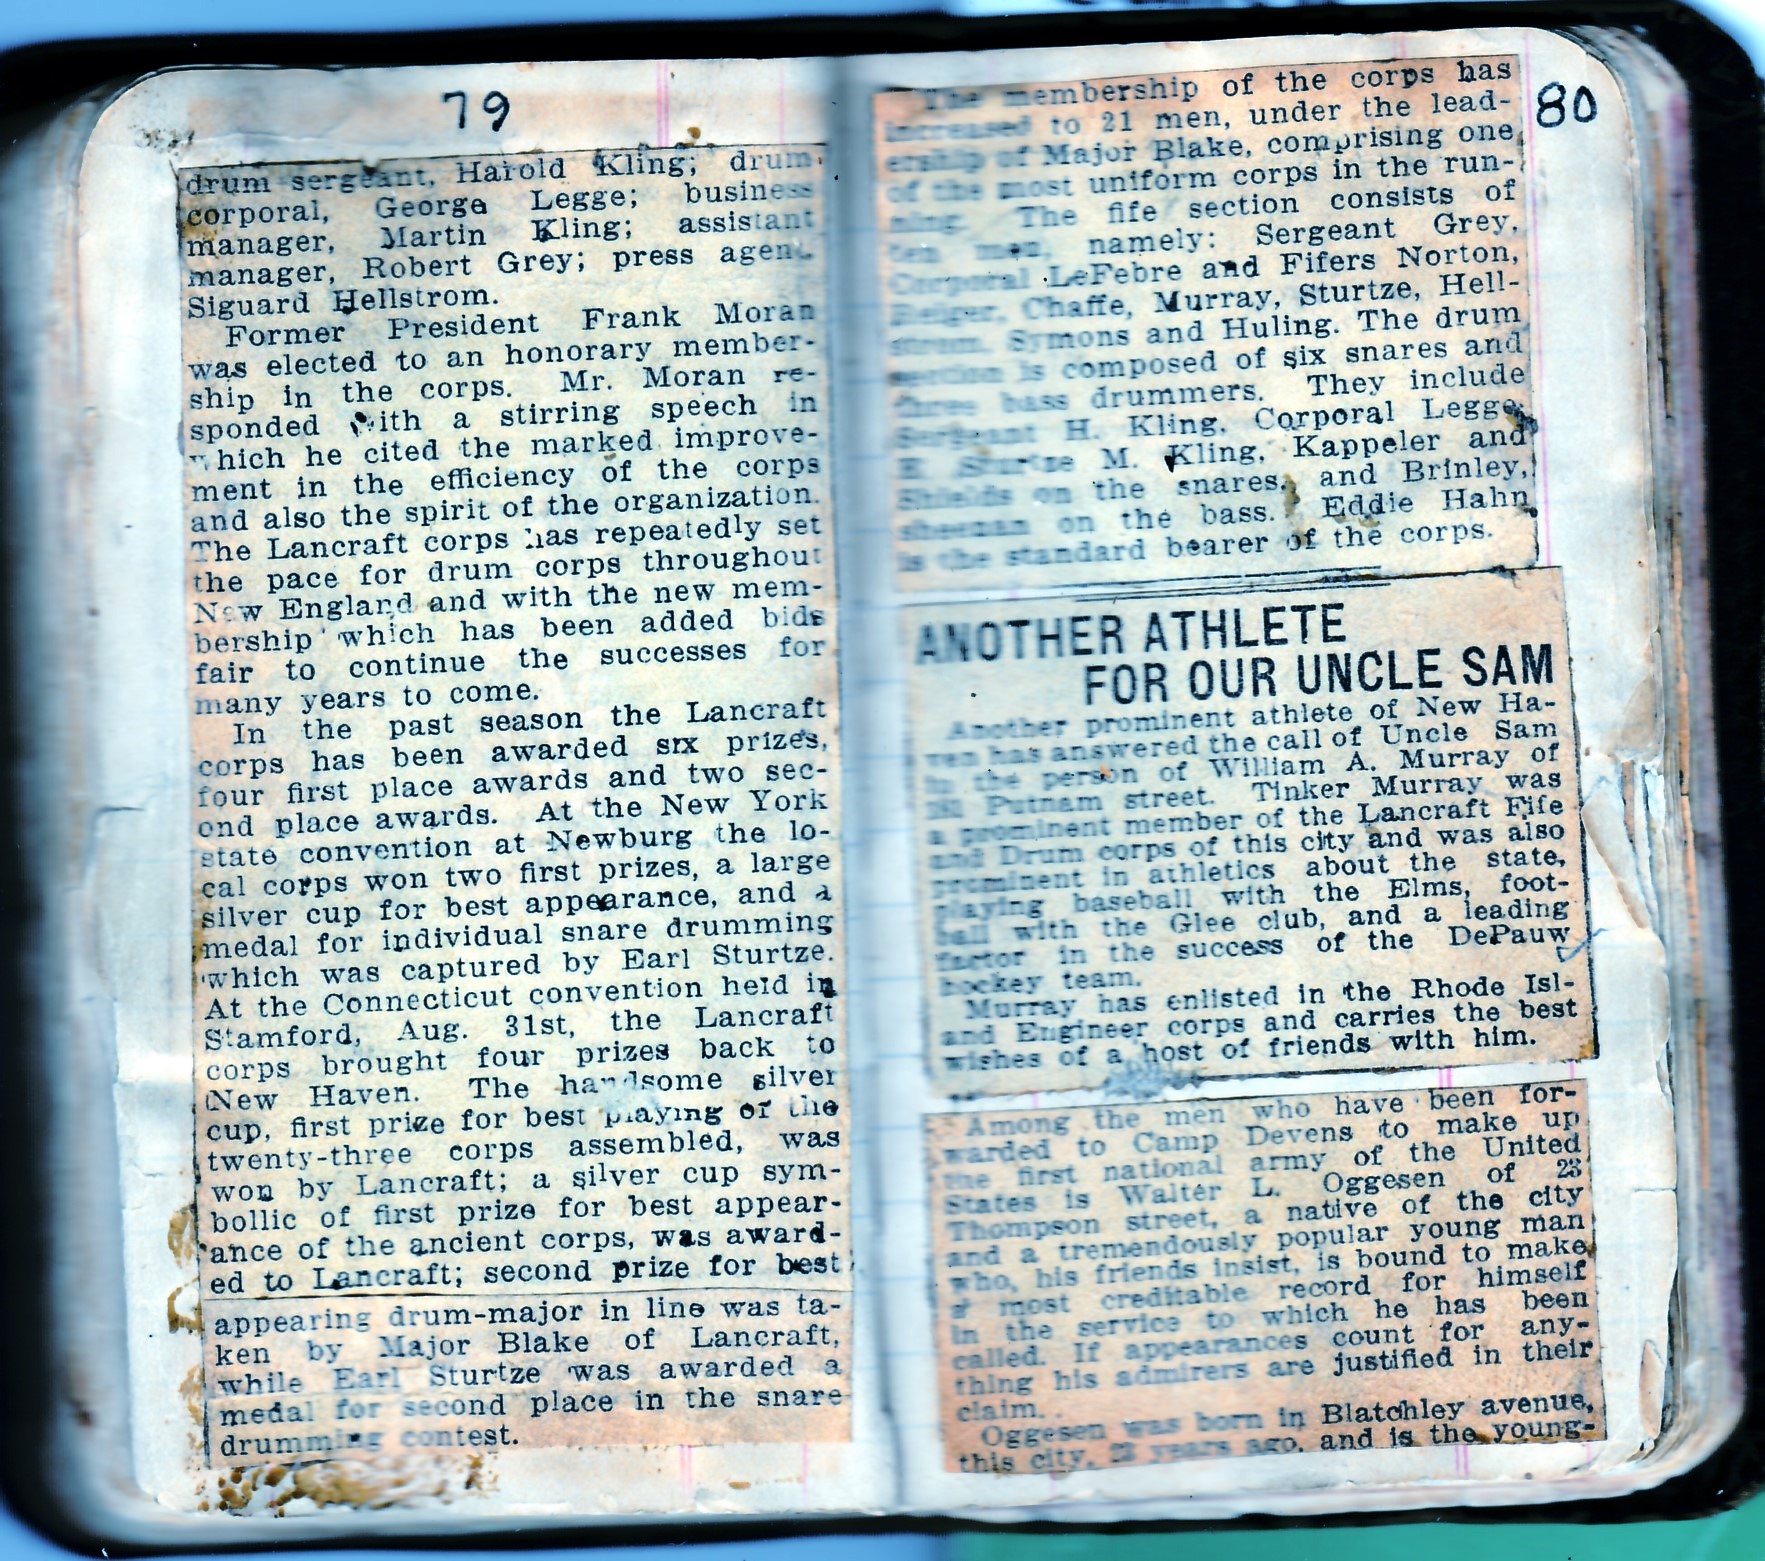 79
drum sergeant, Harold Kling; drum
corporal, George Legge; business
manager, Martin Kling; assistant
manager, Robert Grey; press agent,
Siguard Hellstrom.
Former President Frank Moran
was elected to an honorary member-
ship in the corps. Mr. Moran re-
sponded with a stirring speech in
which he cited the marked improve-
ment in the efficiency of the corps
and also the spirit of the organization.
The Lancraft corps has repeatedly set
the pace for drum corps throughout
New England and with the new mem-
bership which has been added bids
fair to continue the successes for
many years to come.
In the past season the Lancraft
corps has been awarded six prizes,
four first place awards and two sec-
ond place awards. At the New York
state convention at Newburg the lo-
cal corps won two first prizes, a large
silver cup for best appearance, and a
medal for individual snare drumming
which was captured by Earl Sturtze.
At the Connecticut convention held in
Stamford, Aug. 31st, the Lancraft
corps brought four prizes back to
New Haven. The handsome silver
cup, first prize for best playing of the
twenty-three corps assembled, was
won by Lancraft; a silver cup sym-
bollic of first prize for best appear-
ance of the ancient corps, was award-
ed to Lancraft; second prize for best
appearing drum-major in line was ta-
ken by Major Blake of Lancraft,
while Earl Sturtze was awarded a
medal for second place in the snare
drumming contest.
80
The membership of the corps has
increased to 21 men, under the lead-
ership of Major Blake, comprising one
of the most uniform corps in the run-
ning. The fife section consists of
ten men, namely: Sergeant Grey,
Corporal LeFebre and Fifers Norton,
Chaffe, Murray, Sturtze, Hell-
strom, Symons and Huling. The drum
section is composed of six snares and
three bass drummers. They include
Sergeant H. Kling, Corporal Legge,
E. Sturtze M. Kling, Kappeler and
Shields on the snares, and Brinley,
on the bass. Eddie Hahn
is the standard bearer of the corps.
ANOTHER ATHLETE
FOR OUR UNCLE SAM
Another prominent athlete of New Ha-
ven has answered the call of Uncle Sam
in the person of William A. Murray of
Putnam street. Tinker Murray was
a prominent member of the Lancraft Fife
and Drum corps of this city and was also
prominent in athletics about the state,
playing baseball with the Elms, foot-
ball with the Glee club, and a leading
factor in the success of the DePauw
hockey team.
Murray has enlisted in the Rhode Isl-
and Engineer corps and carries the best
wishes of a host of friends with him.
Among the men who have been for-
warded to Camp Devens to make up
the first national army of the United
States is Walter L. Oggesen of 23
Thompson street, a native of the city
and a tremendously popular young man
who, his friends insist, is bound to make
a most creditable record for himself
in the service to which he has been
called. If appearances count for any-
thing his admirers are justified in their
claim.
Oggesen was born in Blatchley avenue,
this city, years ago, and is the young-